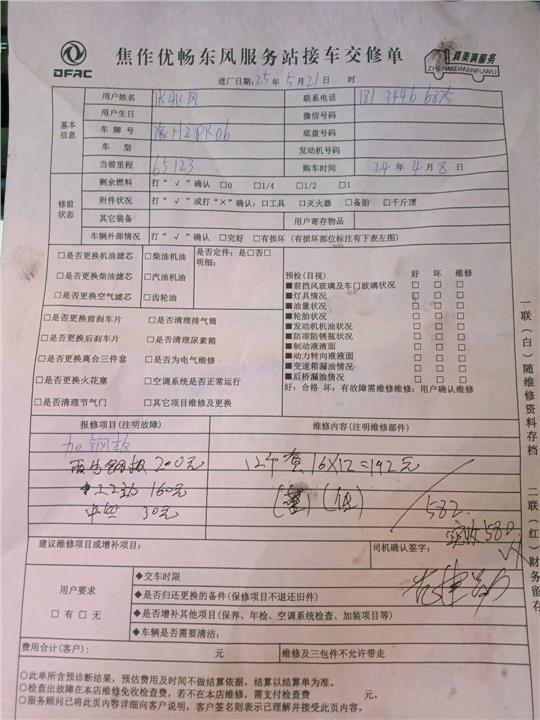 DFAC
焦作优畅东风服务站接车交修单
真美满服务
ZHENMEIMANFUWU
进厂日期:25年5月21日 时
基本信息
用户姓名 联系电话 181 3446 6875
用户生日 微信号码
车牌号 底盘号码
车 型 发动机号码
当前里程 65123 购车时间 24年4月8日
修前状态
剩余燃料 打“√”确认 □0 □1/4 □1/2 □1
附件状况 打“√”或打“×”确认:□工具 □灭火器 □备胎 □千斤顶
其它装备 用户寄存物品
车辆外部情况 打“√”确认 □完好 □有损坏(有损坏部位标注有下表左图)
□是否更换机油滤芯 □柴油机油 是否定件:是□否□
明细:
□是否更换柴油滤芯 □汽油机油
□是否更换空气滤芯 □齿轮油
□是否更换前刹车片 □是否清理排气筒
□是否更换后刹车片 □是否清理尿素箱
□是否更换离合三件套 □是否为电气维修
□是否更换火花塞 □空调系统是否正常运行
□是否清理节气门 □其它项目维修及更换
预检(目视) 好 坏 维修
■前挡风玻璃及车门玻璃状况 □ □ □
■灯具情况 □ □ □
■油量状况 □ □ □
■轮胎状况 □ □ □
■发动机机油状况 □ □ □
■防凉防锈瓶状况 □ □ □
■制动液液面 □ □ □
■动力转向液液面 □ □ □
■变速箱漏油情况 □ □ □
■后桥漏油情况 □ □ □
好:合格 坏:有故障需维修维修:用户确认维修
报修项目(注明故障) 维修内容(注明维修部件)
加钢板
200元 12个 16×12=192元
工时 160元
30元
582
580
建议维修项目或增补项目: 司机确认签字:
用户要求
□有□无
◆交车时限
◆是否归还更换的备件(保修项目不退还旧件)
◆是否增补其他项目(保养、年检、空调系统检查、加装项目等)
◆车辆是否需要清洁:
费用合计(客户): 元 维修及三包件不允许带走
○此单所含预诊断结果,预估费用及时间不做结算依据,结算以结算单为准。
○检查出故障在本店维修免收检查费,若不在本店维修,需支付检查费 元。
○服务顾问已将此页内容详细向客户说明,客户签名则表示已理解并接受此页内容。
一联(白)随维修资料存档 二联(红)财务留存